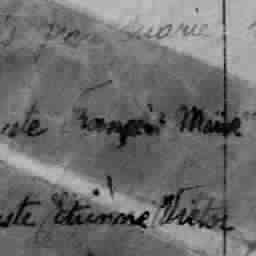 Marie
uste François Marie
uste Etienne Victor